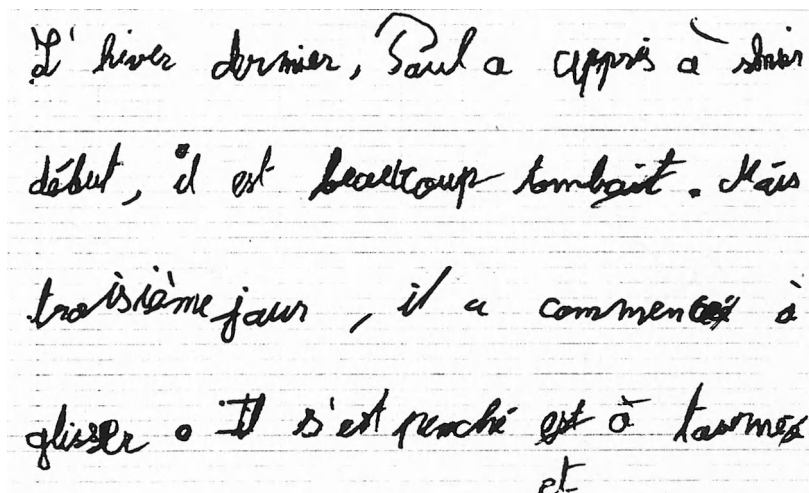 L'hiver dernier, Paul a appris à skier
début, il est beaucoup tombait. Mais
troisième jour, il a commencé à
glisser. Il s'est penché est à tourner
et